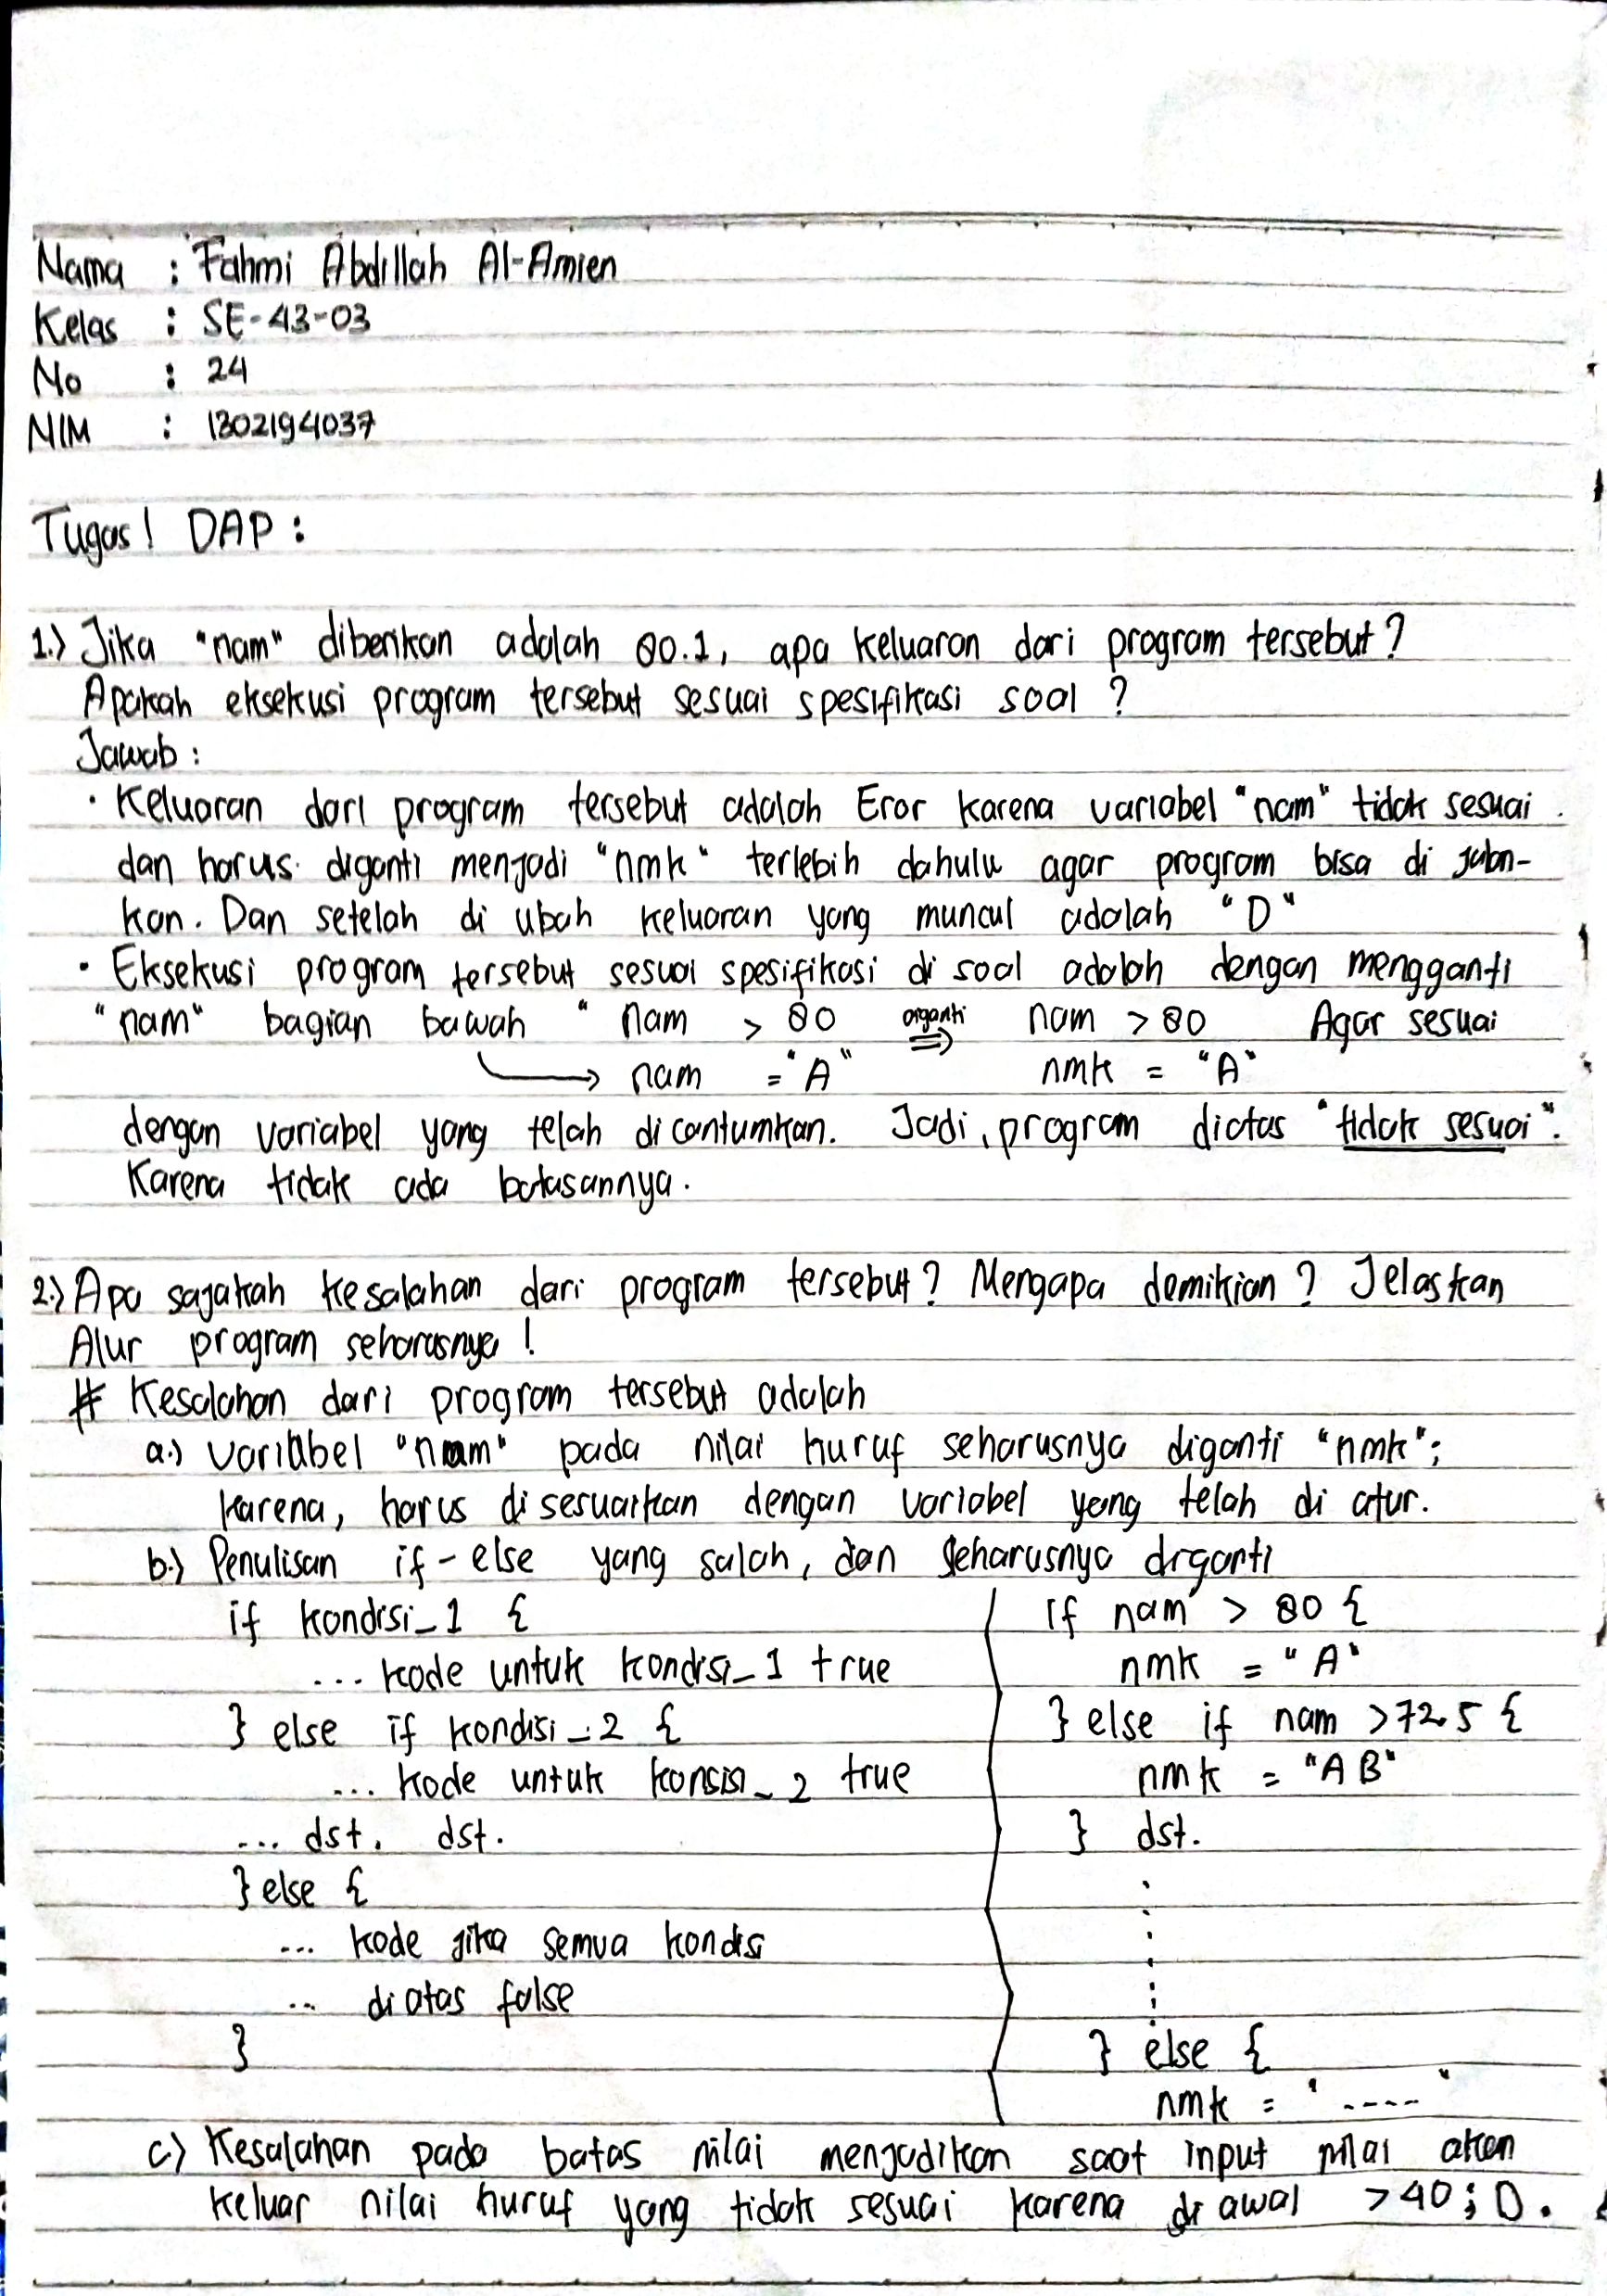 Nama : Fahmi Abdillah Al-Amien
Kelas : SE-43-03
No : 24
NIM : 1302194037
Tugas! DAP :
1.) Jika "nam" diberikan adalah 80.1, apa keluaran dari program tersebut?
Apakah eksekusi program tersebut sesuai spesifikasi soal ?
Jawab :
• Keluaran dari program tersebut adalah Eror karena variabel "nam" tidak sesuai.
dan harus diganti menjadi "nmk" terlebih dahulu agar program bisa di jalan-
kan. Dan setelah di ubah keluaran yang muncul adalah "D"
• Eksekusi program tersebut sesuai spesifikasi di soal adalah dengan mengganti
"nam" bagian bawah " nam > 80 diganti ⇒ nam > 80 Agar sesuai
→ nam = "A" nmk = "A"
dengan variabel yang telah dicantumkan. Jadi, program diatas "tidak sesuai".
Karena tidak ada batasannya.
2.) Apa sajakah kesalahan dari program tersebut? Mengapa demikian? Jelaskan
Alur program seharusnya !
# Kesalahan dari program tersebut adalah
a.) variabel "nam" pada nilai huruf seharusnya diganti "nmk";
karena, harus disesuaikan dengan variabel yang telah di atur.
b.) Penulisan if-else yang salah, dan seharusnya diganti
if kondisi_1 { If nam > 80 {
... kode untuk kondisi_1 true nmk = "A"
} else if kondisi_2 { } else if nam >72.5 {
... kode untuk konsisi_2 true nmk = "AB"
... dst. dst. } dst.
} else {
... kode jika semua kondisi
... diatas false
} } else {
nmk = "----"
c.) Kesalahan pada batas nilai menjadikan saat input nilai akan
keluar nilai huruf yang tidak sesuai karena di awal >40 ; D.